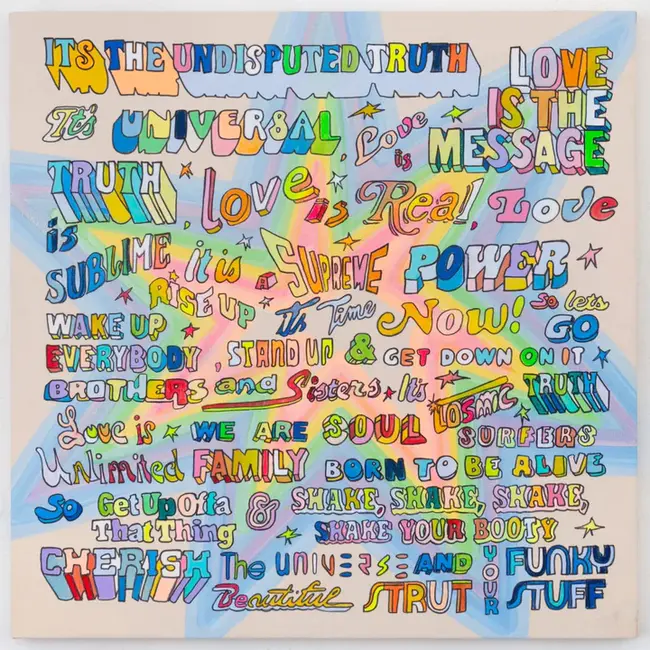 ITS THE UNDISPUTED TRUTH
LOVE IS THE MESSAGE
It's UNIVERSAL, Love is
TRUTH, LOVE is Real, Love
is SUBLIME it is a SUPREME POWER
RISE UP Its Time NOW! So lets GO
WAKE UP
EVERYBODY, STAND UP & GET DOWN ON IT
BROTHERS and Sisters It's COSMIC TRUTH
Love is WE ARE SOUL SURFERS
Unlimited FAMILY BORN TO BE ALIVE
So Get Up Offa That Thing & SHAKE, SHAKE, SHAKE,
SHAKE YOUR BOOTY
CHERISH The UNIVERSE AND YOUR FUNKY STUFF
Beautiful STRUT